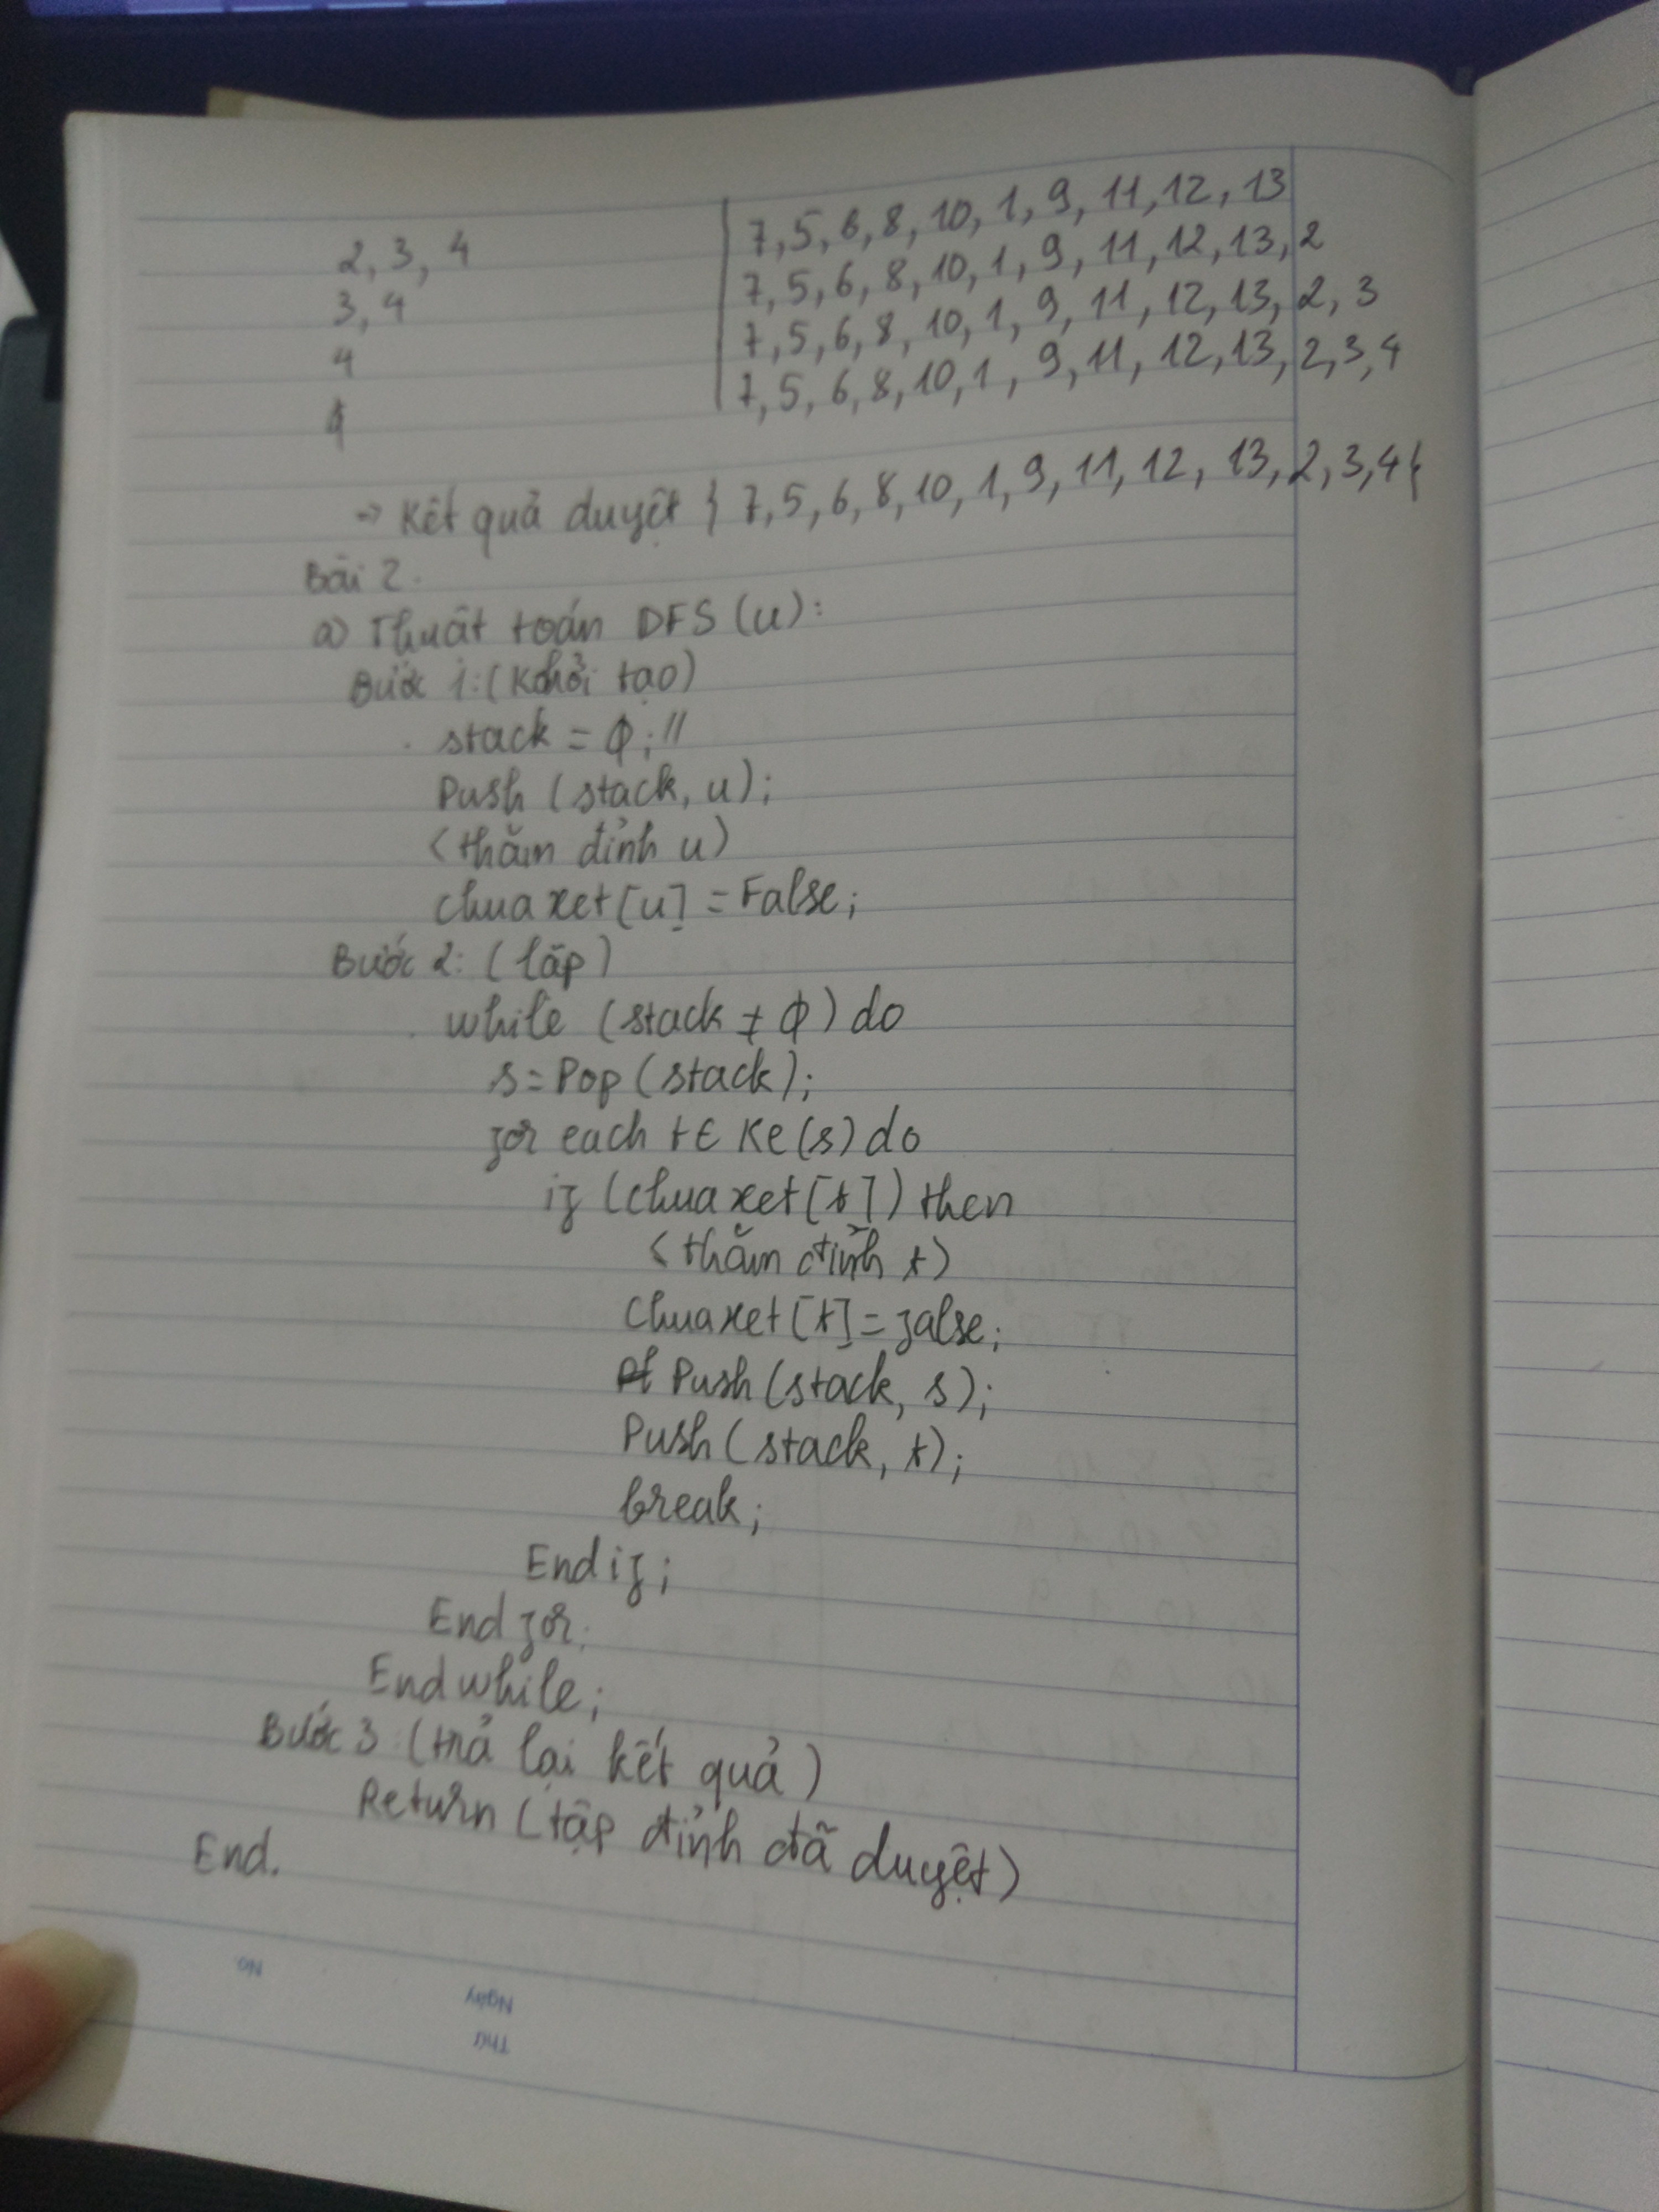 2, 3, 4 | 7, 5, 6, 8, 10, 1, 9, 11, 12, 13
3, 4 | 7, 5, 6, 8, 10, 1, 9, 11, 12, 13, 2
4 | 7, 5, 6, 8, 10, 1, 9, 11, 12, 13, 2, 3
ϕ | 7, 5, 6, 8, 10, 1, 9, 11, 12, 13, 2, 3, 4
→ Kết quả duyệt } 7, 5, 6, 8, 10, 1, 9, 11, 12, 13, 2, 3, 4 {
Bài 2.
a) Thuật toán DFS (u):
Bước 1: (Khởi tạo)
stack = ϕ; //
Push (stack, u);
<thăm đỉnh u>
chuaxet[u] = False;
Bước 2: (lặp)
while (stack ≠ ϕ) do
s = Pop (stack);
for each t ∈ Ke(s) do
if (chuaxet[t]) then
<thăm đỉnh t>
Chuaxet[t] = false;
Push (stack, s);
Push (stack, t);
break;
End if;
End for;
End while;
Bước 3: (trả lại kết quả)
Return (tập đỉnh đã duyệt)
End.
No
Ngày
Thứ